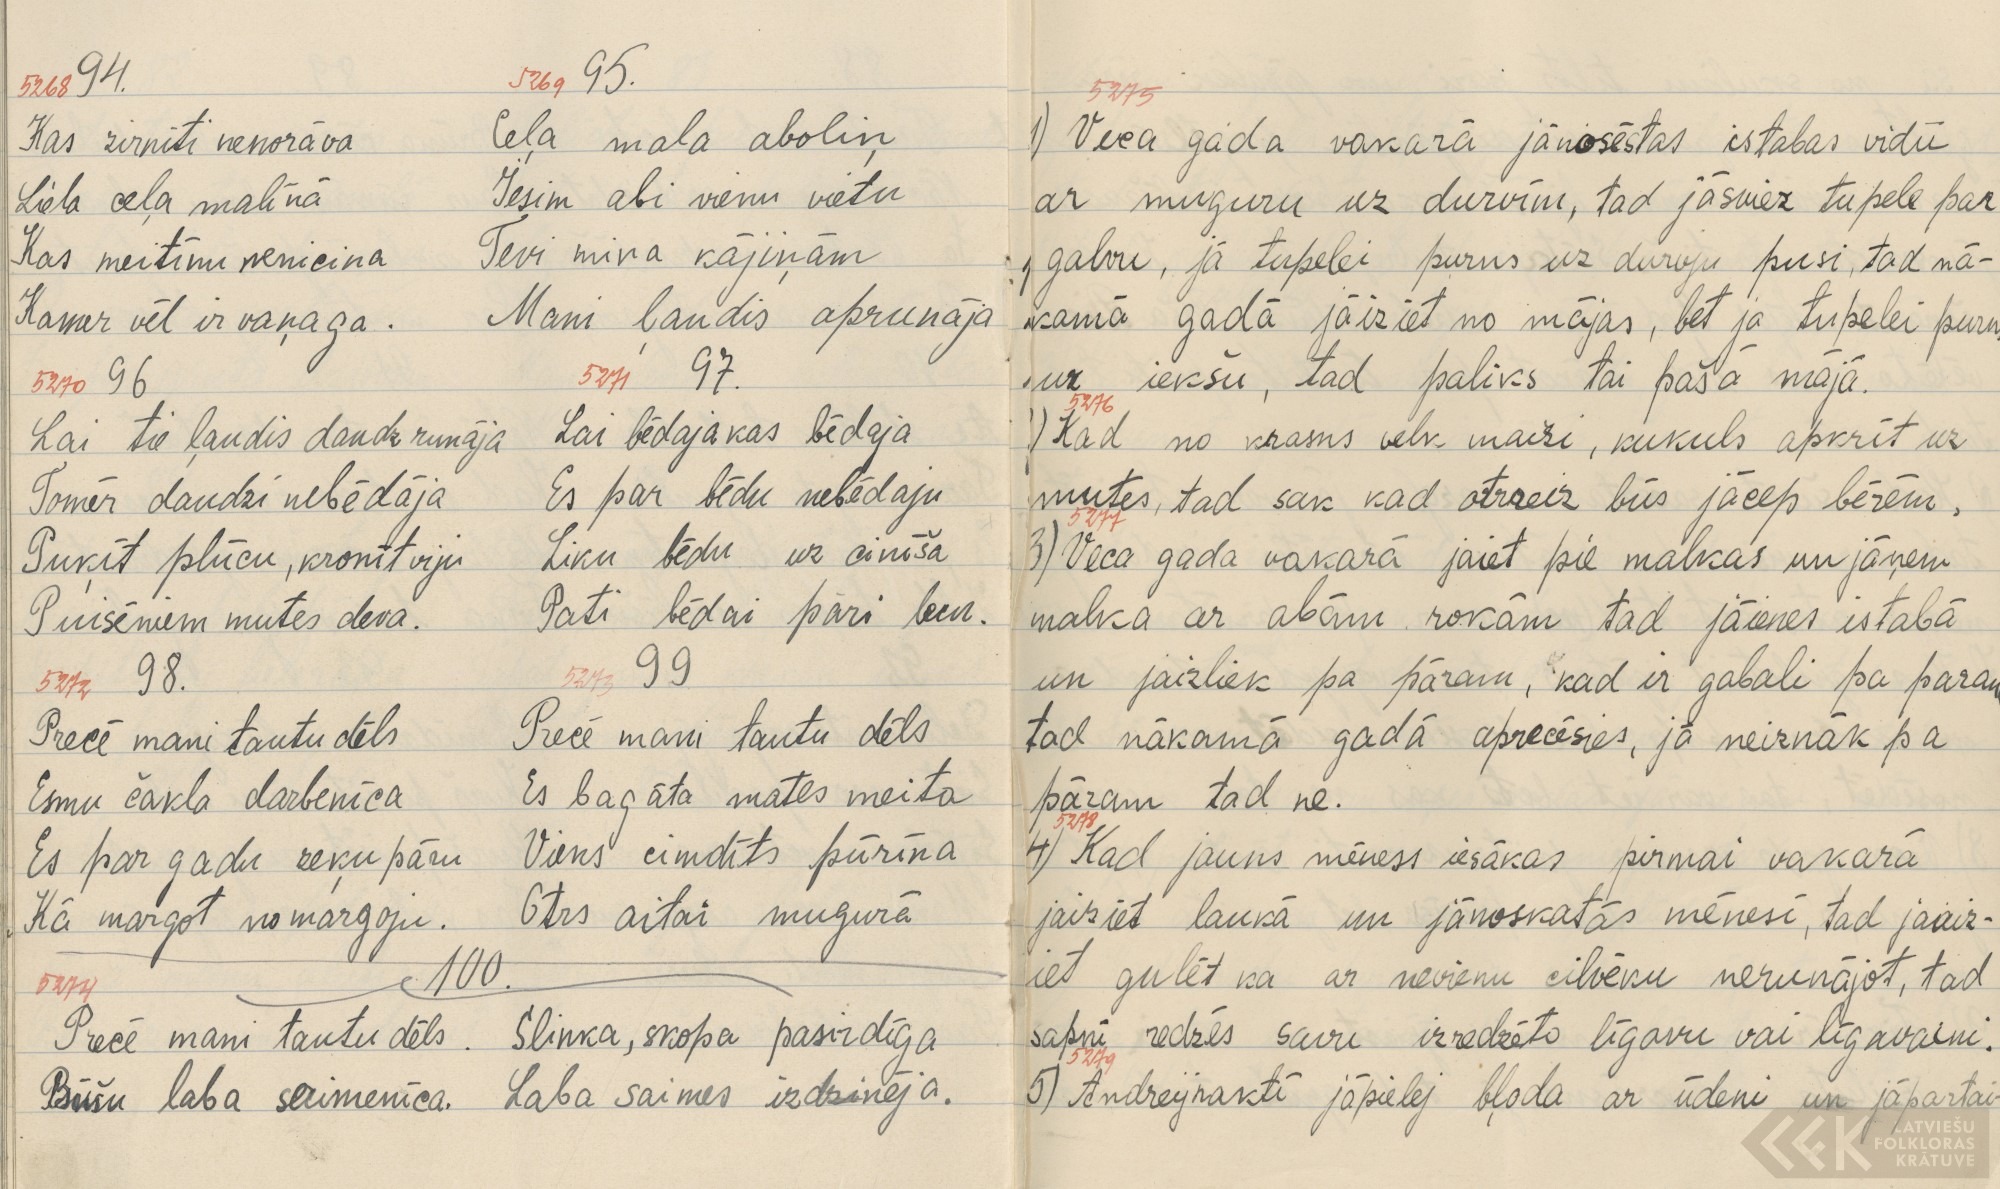 5268 94.
Kas zirnīti nenorāva
Liela ceļa maliņā
Kas meitiņu nenicina
Kamer vēl ir vaņaga.
5269 95.
Ceļa mala aboliņ
Iesim abi vienu vietu
Tevi mina kājiņām
Mani ļaudis aprunāja
5270 96
Lai tie ļaudis daudz runāja
Tomēr daudzi nebēdāja
Puķīt plūcu, kronīt viju
Puisēniem mutes deva.
5271 97.
Lai bēdaja kas bēdaja
Es par bēdu nebēdaju
Liku bēdu uz ciniša
Pati bēdai pāri leeu.
5272 98.
Precē mani tautu dēls
Esmu čakla darbenīca
Es par gadu zeķu pāru
Kā margot nomargoju.
5273 99
Precē mani tautu dēls
Es bagāta mātes meita
Viens cimdīts pūriņa
Otrs aitai mugurā
5274 100.
Precē mani tautu dēls. Slinka, skopa pasirdīga
Būšu laba saimenīca. Laba saimes izdzinēja.
5275
1) Veca gada vakarā jānosēstas istabas vidū
ar muguru uz durvīm, tad jāsviez tupele par
galvu, jā tupelei purns uz durvju pusi, tad nā-
kamā gadā jāiziet no mājas, bet ja tupelei purns
uz iekšu, tad paliks tai pašā mājā.
5276
2) Kad no krasns velk maizi, kukuls apkrīt uz
mutes, tad sak kad otrreiz būs jācep bērēm.
5277
3) Veca gada vakarā jaiet pie malkas un jāņem
malka ar abām rokām tad jāienes istabā
un jaizliek pa pāram, kad ir gabali pa param
tad nākamā gadā aprecēsies, jā neiznāk pa
pāram tad ne.
5278
4) Kad jauns mēness iesākas pirmai vakarā
jaiziet laukā un jānoskatās mēnesī, tad jaaiz-
iet gulēt ka ar nevienu cilvēku nerunājot, tad
sapnī redzēs savu izredzēto līgavu vai līgavaini.
5279
5) Andrejnaktī jāpielej bļoda ar ūdeni un jāpartai-
LATVIEŠU
FOLKLORAS
KRĀTUVE